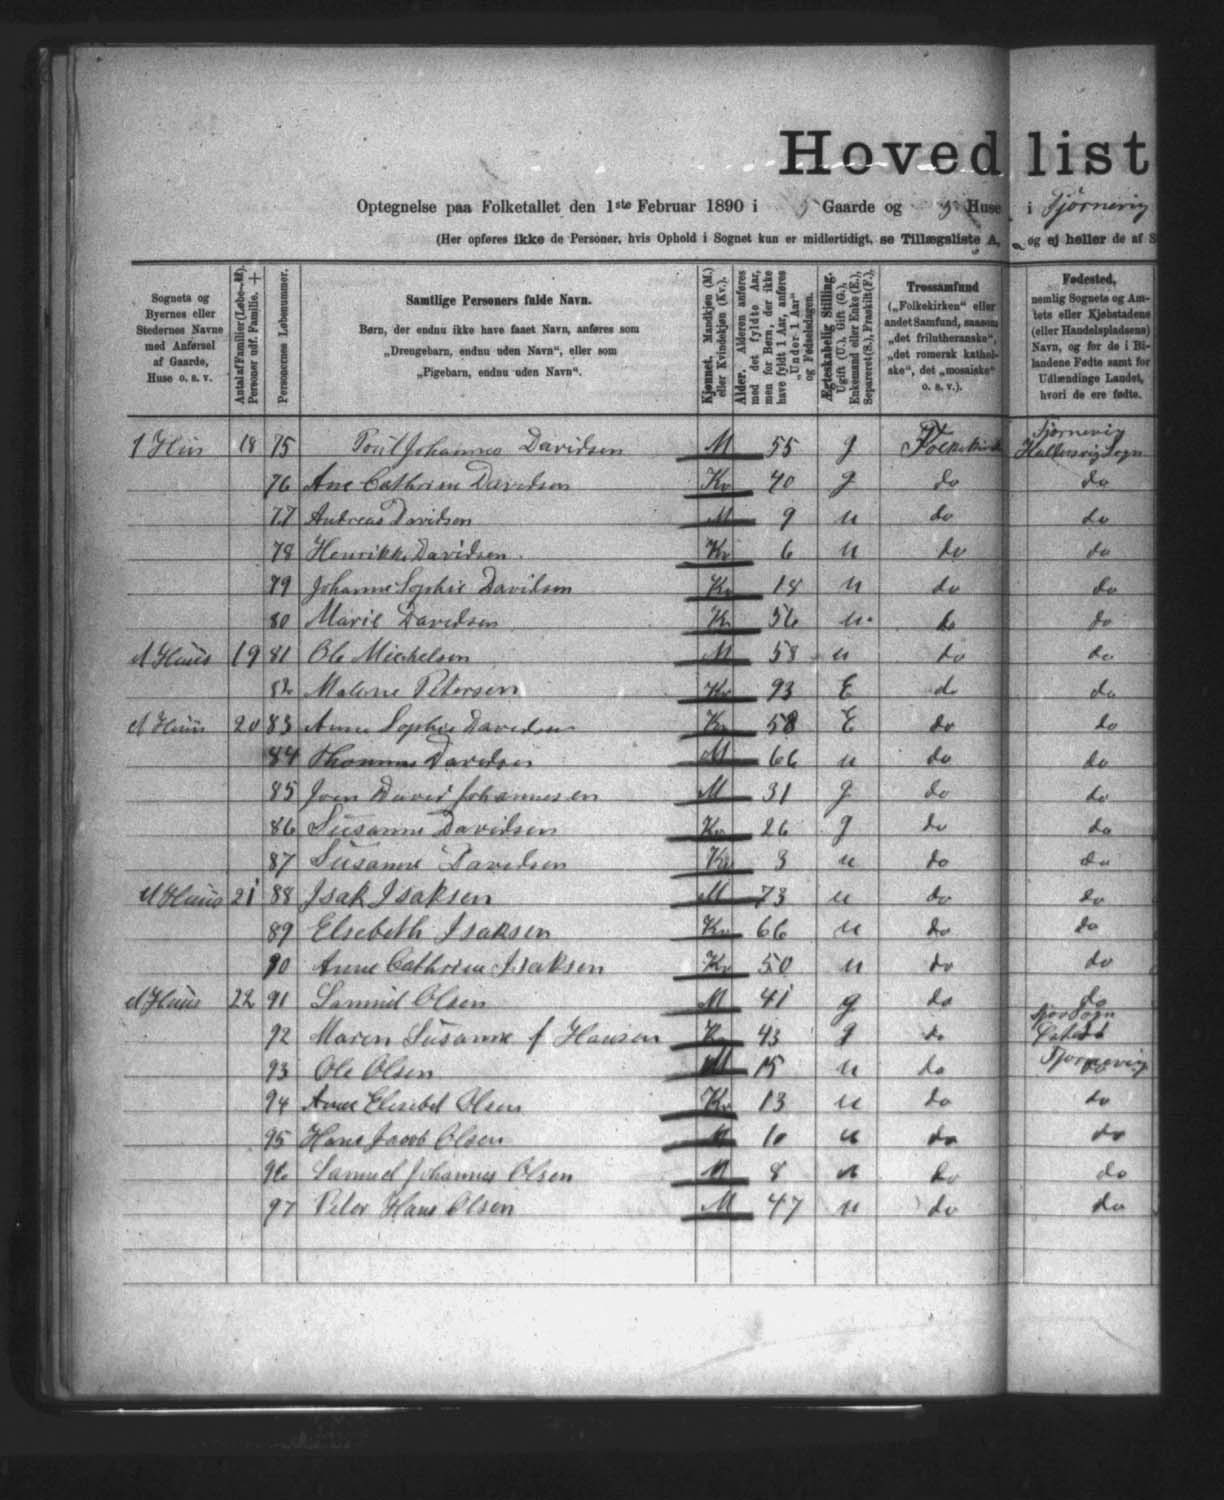 Hovedlist
Optegnelse paa Folketallet den 1ste Februar 1890 i 5 Gaarde og 5 Huse i Tjørnevig
(Her opføres ikke de Personer, hvis Ophold i Sognet kun er midlertidigt, se Tillægsliste A, og ej heller de af S
Sognets og Byernes eller Stedernes Navne med Anførsel af Gaarde, Huse o. s. v.
Antal af Familier (Løbe-№). Personer udf. Familie. +
Personernes Løbenummer.
Samtlige Personers fulde Navn.
Børn, der endnu ikke have faaet Navn, anføres som
„Drengebarn, endnu uden Navn“, eller som
„Pigebarn, endnu uden Navn“.
Kjønnet. Mandkjøn (M.) eller Kvindekjøn (Kv.).
Alder. Alderen anføres med det fyldte Aar, men for Børn, der ikke have fyldt 1 Aar, anføres „Under 1 Aar“ og Fødselsdagen.
Ægteskabelig Stilling. Ugift (U.), Gift (G.), Enkemand eller Enke (E.), Separeret (S.), Fraskilt (F.).
Trossamfund
(„Folkekirken“ eller andet Samfund, saasom „det frilutheranske“, „det romersk katholske“, det „mosaiske“ o. s. v.).
Fødested,
nemlig Sognets og Amtets eller Kjøbstadens (eller Handelspladsens) Navn, og for de i Bilandene Fødte samt for Udlændinge Landet, hvori de ere fødte.
1 Huus 18 75 Poul Johannes Davidsen M 55 g Folkekirk Tjørnevig
Haldersvig Sogn
76 Ane Cathrine Davidsen Kv 40 g do do
77 Andreas Davidsen M 9 u do do
78 Henrikke Davidsen Kv 6 u do do
79 Johanne Sophie Davidsen Kv 18 u do do
80 Marie Davidsen Kv 56 u do do
1 Huus 19 81 Ole Michelsen M 58 u do do
82 Malene Petersen Kv 93 E do do
1 Huus 20 83 Anne Sophie Davidsen Kv 58 E do do
84 Thomas Davidsen M 66 u do do
85 Joen David Johannesen M 31 g do do
86 Susanne Davidsen Kv 26 g do do
87 Susanne Davidsen Kv 3 u do do
1 Huus 21 88 Isak Isaksen M 73 u do do
89 Elsebeth Isaksen Kv 66 u do do
90 Anne Cathrine Isaksen Kv 50 u do do
1 Huus 22 91 Samuel Olsen M 41 g do do
92 Maren Susanne f Hansen Kv 43 g do Sogn
93 Ole Olsen M 15 u do Tjørnevig
94 Anne Elsebet Olsen Kv 13 u do do
95 Hans Jacob Olsen M 10 u do do
96 Samuel Johannes Olsen M 8 u do do
97 Peter Hans Olsen M 47 u do do